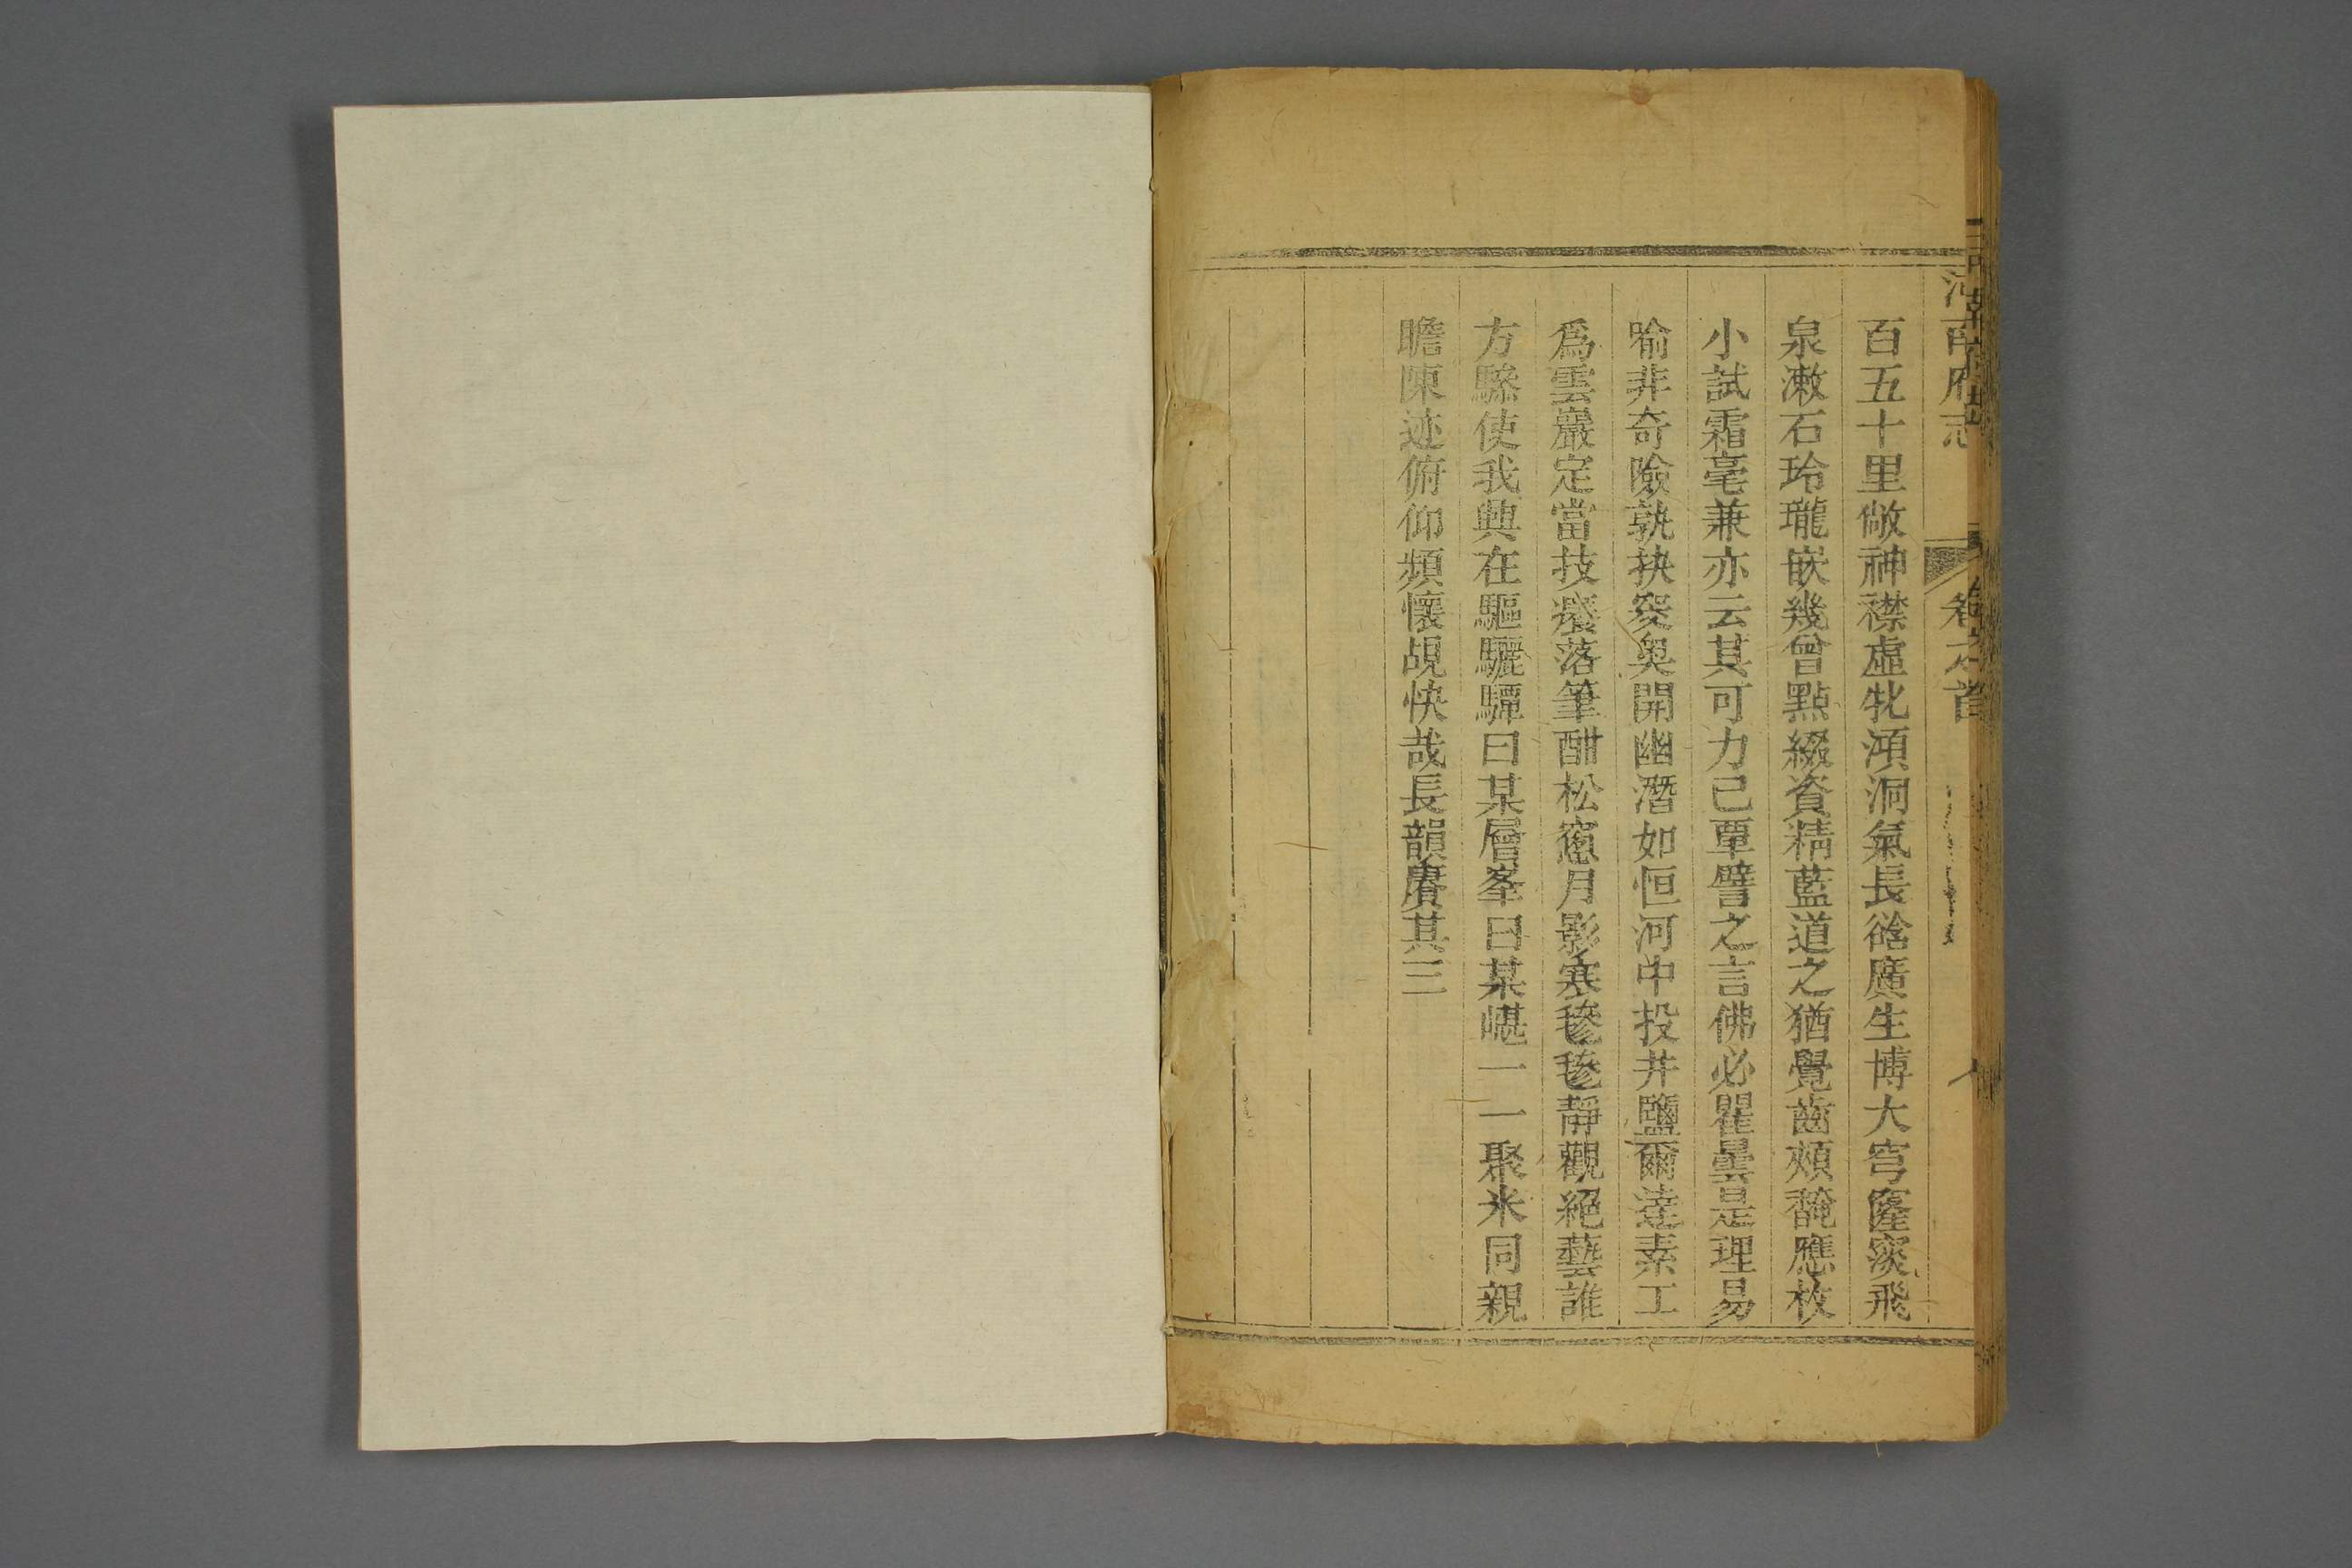 河南府志 卷之首
百五十里敞神襟虛牝澒洞氣長谽廣生博大穹窿窔飛
泉漱石玲瓏嵌幾曾點綴資精藍道之猶覺齒頰馣應枚
小試霜毫兼亦云其可力已覃譬之言佛必瞿曇是理易
喻非奇險孰抉窔奧開幽潛如恒河中投井鹽爾達素工
爲雲巖定當技癢落筆酣松窻月影寒毿毿靜觀絕藝誰
方驂使我興在驅驪驔曰某層峯曰某嵁一一聚米同親
瞻陳迹俯仰頻懷覘快哉長韻賡其三